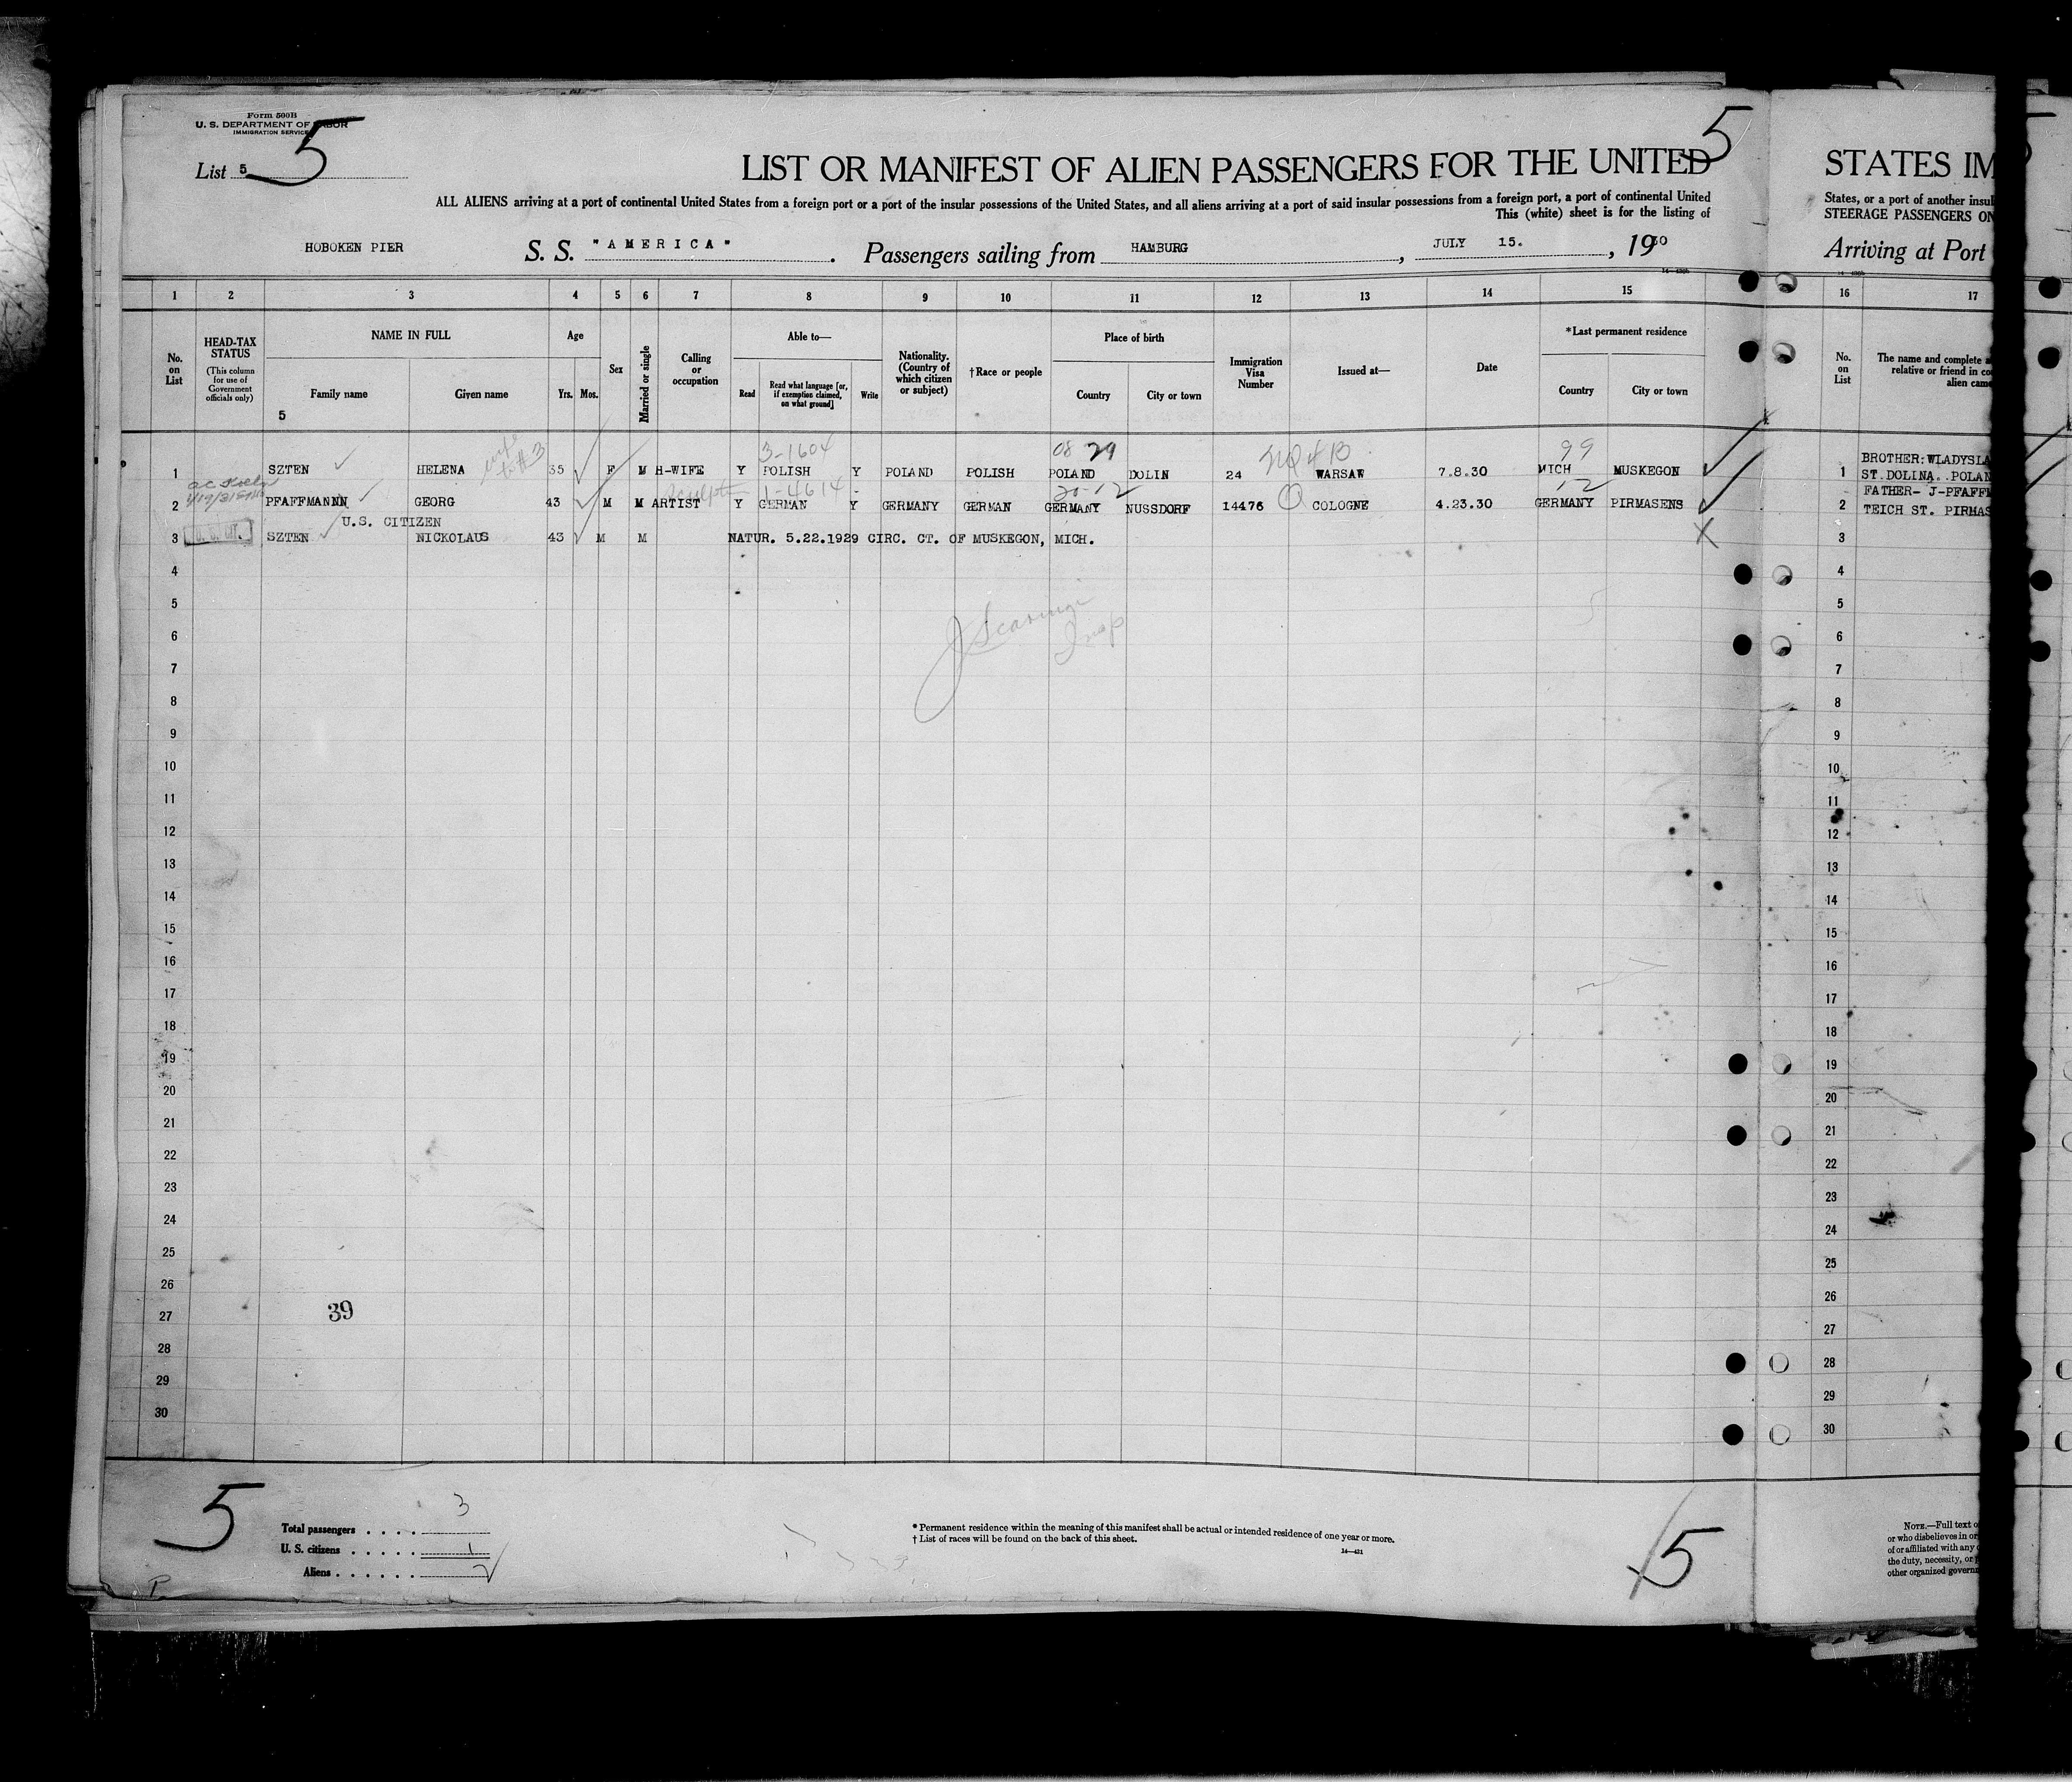 Form 500B
U. S. DEPARTMENT OF LABOR
IMMIGRATION SERVICE
5
5
List 5
LIST OR MANIFEST OF ALIEN PASSENGERS FOR THE UNITED
ALL ALIENS arriving at a port of continental United States from a foreign port or a port of the insular possessions of the United States, and all aliens arriving at a port of said insular possessions from a foreign port, a port of continental United
This (white) sheet is for the listing of
HOBOKEN PIER S. S. "AMERICA". Passengers sailing from HAMBURG, JULY 15., 1930
1 2 3 4 5 6 7 8 9 10 11 12 13 14 15
No. on List
HEAD-TAX STATUS
(This column for use of Government officials only)
NAME IN FULL
Family name
Given name
5
Age
Yrs. Mos.
Sex
Married or single
Calling or occupation
Able to—
Read
Read what language [or, if exemption claimed, on what ground]
Write
Nationality. (Country of which citizen or subject)
†Race or people
Place of birth
Country
City or town
Immigration Visa Number
Issued at—
Date
*Last permanent residence
Country
City or town
wife to #3 3-1604 08 29 99
1 SZTEN HELENA 35 F M H-WIFE Y POLISH Y POLAND POLISH POLAND DOLIN 24 WARSAW 7.8.30 MICH MUSKEGON
1-4614 20-12 12
2 PFAFFMANNN GEORG 43 M M ARTIST Y GERMAN Y GERMANY GERMAN GERMANY NUSSDORF 14476 COLOGNE 4.23.30 GERMANY PIRMASENS
U.S. CITIZEN
3 SZTEN NICKOLAUS 43 M M NATUR. 5.22.1929 CIRC. CT. OF MUSKEGON, MICH. X
4
5
6
7
8
9
10
11
12
13
14
15
16
17
18
19
20
21
22
23
24
25
26
27
28
29
30
39
5
Total passengers . . . . 3
U. S. citizens . . . . . 1
Aliens . . . . . . 2
* Permanent residence within the meaning of this manifest shall be actual or intended residence of one year or more.
† List of races will be found on the back of this sheet.
14—431
5
STATES IM
States, or a port of another insul
STEERAGE PASSENGERS ON
Arriving at Port
16 17
No. on List
The name and complete a
relative or friend in co
alien came
1 BROTHER:WLADYSLA
ST.DOLINA. POLAN
FATHER- J-PFAFFM
2 TEICH ST. PIRMAS
3
4
5
6
7
8
9
10
11
12
13
14
15
16
17
18
19
20
21
22
23
24
25
26
27
28
29
30
NOTE.—Full text o
or who disbelieves in or
of or affiliated with any o
the duty, necessity, or p
other organized governm